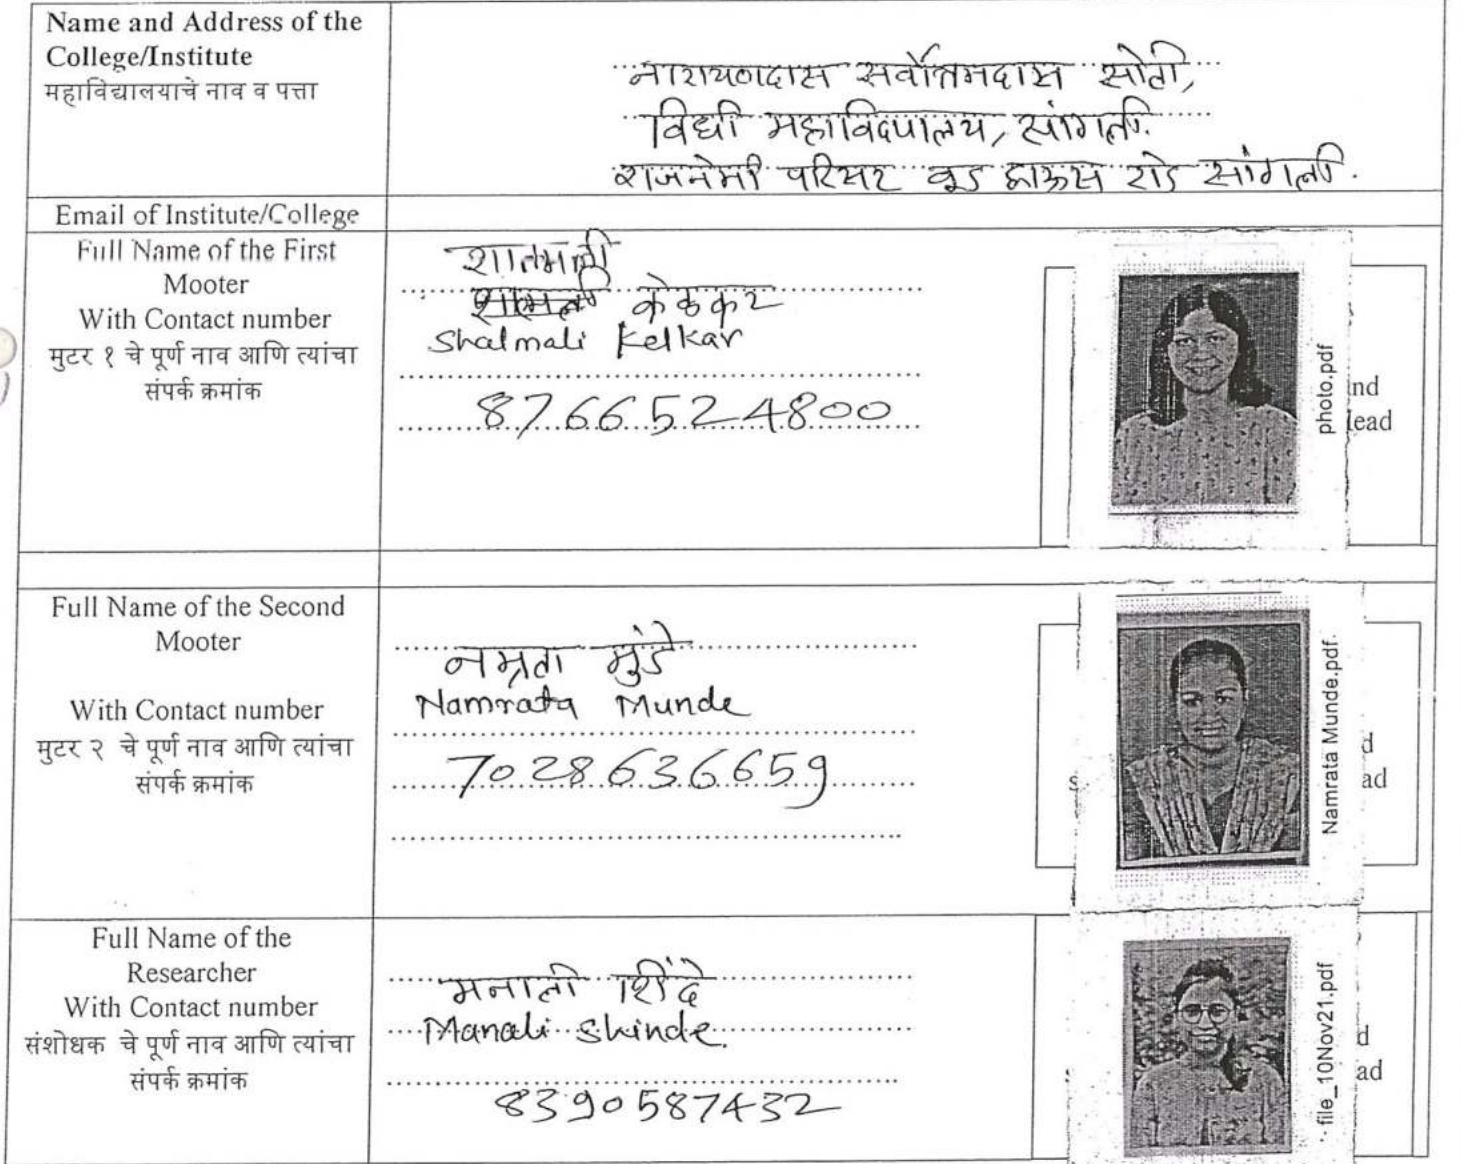 Name and Address of the
College/Institute
महाविद्यालयाचे नाव व पत्ता
नारायणदास सर्वोत्तमदास सोटी,
विधी महाविद्यालय, सांगली.
राजनेमी परिसर वूड हाऊस रोड सांगली.
Email of Institute/College
Full Name of the First
Mooter
With Contact number
मुटर १ चे पूर्ण नाव आणि त्यांचा
संपर्क क्रमांक
शाल्मली
केळकर
Shalmali Kelkar
8766524800
photo.pdf
nd
lead
Full Name of the Second
Mooter
With Contact number
मुटर २ चे पूर्ण नाव आणि त्यांचा
संपर्क क्रमांक
नम्रता मुंडे
Namrata Munde
7028636659
Namrata Munde.pdf
s
d
ad
Full Name of the
Researcher
With Contact number
संशोधक चे पूर्ण नाव आणि त्यांचा
संपर्क क्रमांक
मनाली शिंदे
Manali Shinde.
8390587432
file_10Nov21.pdf
d
ad